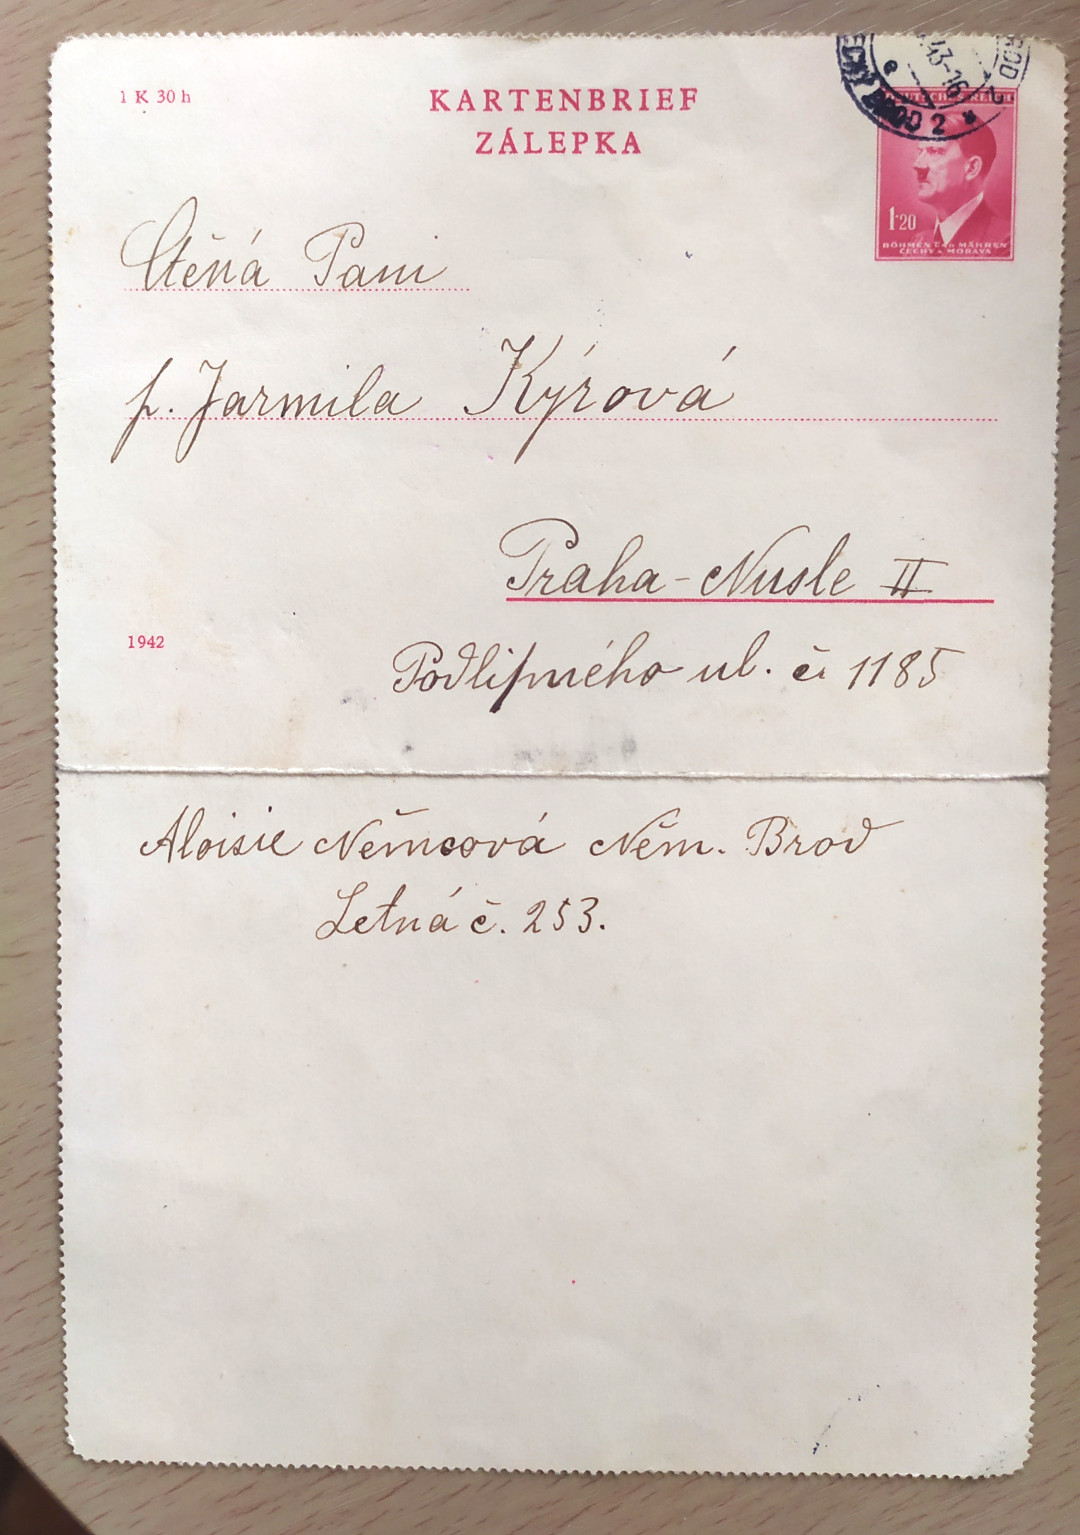 1 K 30 h
KARTENBRIEF
ZÁLEPKA
43-16
BROD 2
DEUTSCHES REICH
1·20
BÖHMEN UND MÄHREN
ČECHY A MORAVA
Ctěná Paní
p. Jarmila Kýrová
Praha-Nusle II
1942
Podlipného ul. č. 1185
Aloisie Němcová Něm. Brod
Letná č. 253.